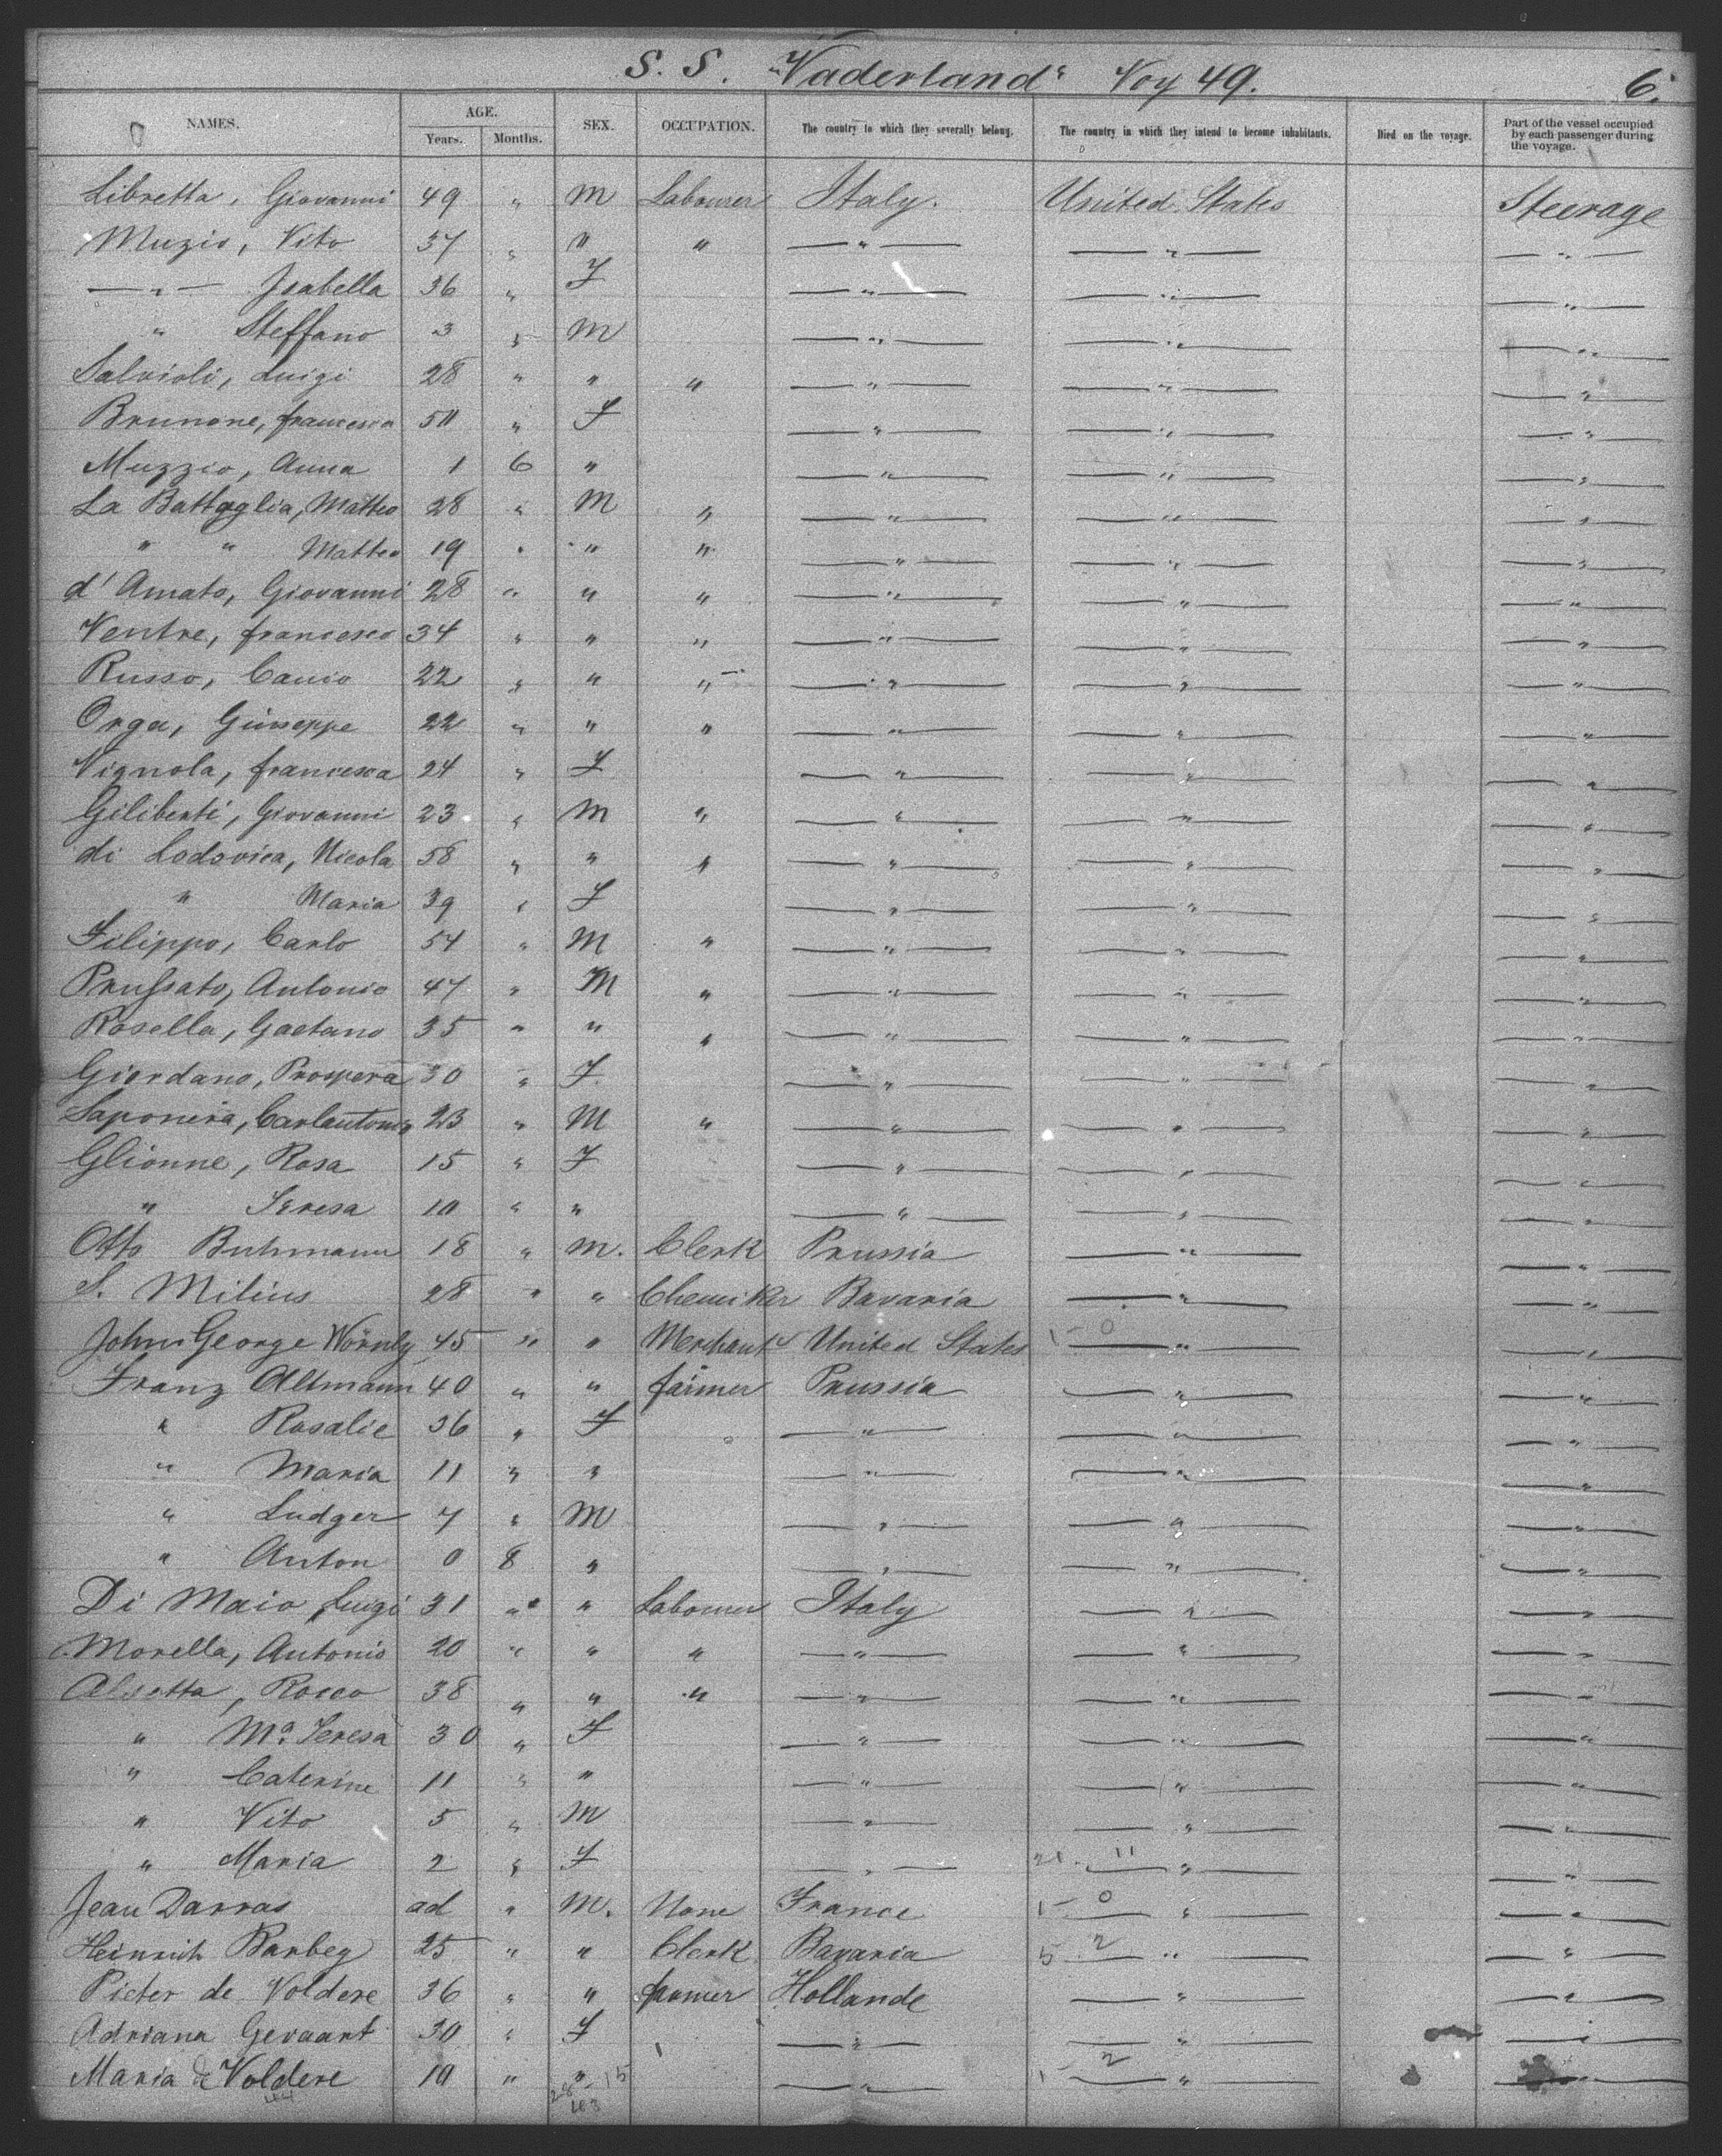 S. S. "Vaderland" Voy 49. 6.
NAMES. AGE. SEX. OCCUPATION. The country to which they severally belong. The country in which they intend to become inhabitants. Died on the voyage. Part of the vessel occupied by each passenger during the voyage.
Years. Months.
Libretta, Giovanni 49 " M Labourer Italy. United States Steerage
Muzio, Vito 37 " " " " " "
" Isabella 36 " F " " "
" Steffano 3 " M " " "
Salvioli, Luigi 28 " " " " " "
Brunone, francesca 50 " F " " "
Muzzio, Anna 1 6 " " " "
La Battaglia, Matteo 28 " M " " " "
" " Matteo 19 " " " " " "
d'Amato, Giovanni 28 " " " " " "
Ventre, francesco 34 " " " " " "
Russo, Canio 22 " " " " " "
Orga, Giuseppe 22 " " " " " "
Vignola, francesca 24 " F " " "
Giliberti, Giovanni 23 " M " " " "
di Lodovica, Nicola 58 " " " " " "
" Maria 39 " F " " "
Filippo, Carlo 54 " M " " " "
Prussato, Antonio 47 " M " " " "
Rosella, Gaetano 35 " " " " " "
Giordano, Prospera 30 " F. " " "
Saponira, Carlantonio 23 " M " " " "
Glionne, Rosa 15 " F " " "
" Teresa 10 " " " " "
Otto Buhmann 18 " M. Clerk Prussia " "
S. Milius 28 " " Chemiker Bavaria " "
John George Wörnly 45 " " Merchant United States 1 - 0 " "
Franz Altmann 40 " " farmer Prussia " "
" Rosalie 36 " F " " "
" Maria 11 " " " " "
" Ludger 7 " M " " "
" Anton 0 8 " " " "
Di Maio, Luigi 31 " " Labourer Italy " "
Morella, Antonio 20 " " " " " "
Alsetta, Rocco 38 " " " " " "
" Ma. Teresa 30 " F " " "
" Caterine 11 " " " " "
" Vito 5 " M " " "
" Maria 2 " F " 21 - 11 " "
Jean Darras ad " M. None France 1 - 0 " "
Heinrich Barbey 25 " " Clerk Bavaria 5 2 " "
Pieter de Voldere 36 " " farmer Hollande " "
Adriana Gevaart 30 " F " " "
Maria de Voldere 10 " " " 1 - 2 " "
44 28 - 15